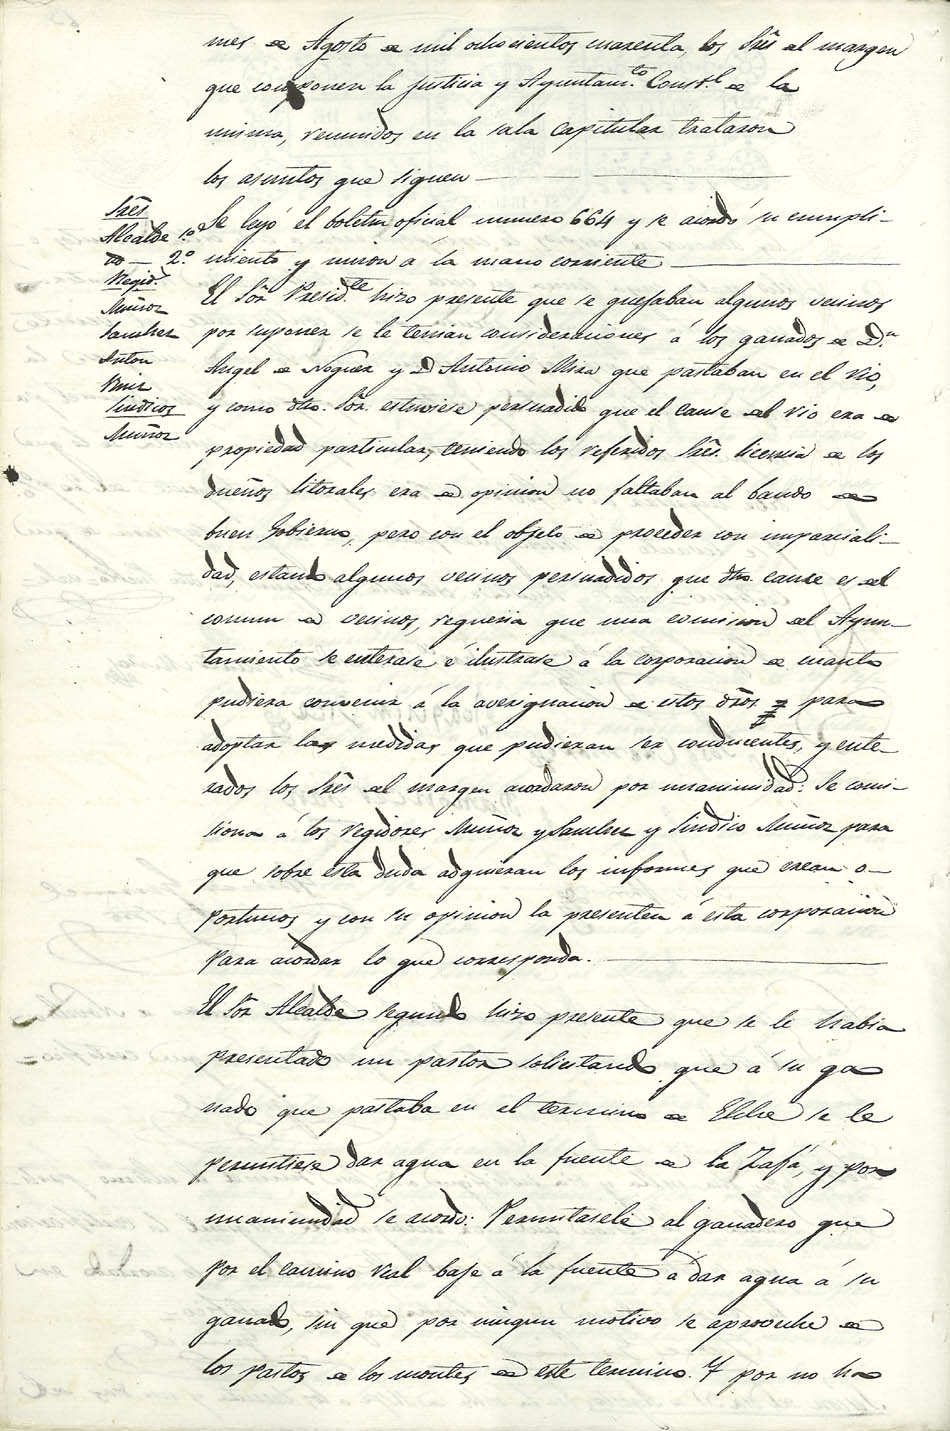 mes de Agosto de mil ochocientos cuarenta, los Sres del margen
que componen la Justicia y Ayuntamto. Constl. de la
misma, reunidos en la sala capitular trataron
los asuntos que siguen
Sres
Alcalde 1o
Yd 2o.
Regid.s
Muñoz
Sanchez
Anton
Ruiz
Sindicos
Muñoz
Se leyó el boletin oficial numero 664 y se acordó su cumpli-
miento y union á la mano corriente
El Sor. Presidte. hizo presente que se quejaban algunos vecinos
por suponer se le tenian consideraciones á los ganados de Dn.
Angel de Noguera y D Antonio Mira que pastaban en el rio,
y como dho. Sor. estuviese persuadido que el cause del rio era de
propiedad particular, teniendo los referidos Sres. licencia de los
dueños litorales, era de opinion no faltaban al bando de
buen Gobierno, pero con el objeto de proceder con imparciali-
dad, estando algunos vecinos persuadidos que dho. cause es del
comun de vecinos, requeria que una comision del Ayun-
tamiento se enterase é ilustrase á la corporacion de cuanto
pudiera convenir á la averiguacion de estos dros para
adoptar las medidas que pudieran ser conducentes, y ente-
rados los Sres del margen acordaron por unanimidad: Se comi-
siona á los regidores Muñoz y Sanchez y Sindico Muñoz para
que sobre esta duda adquieran los informes que crean o-
portunos y con su opinion la presenten á esta corporacion
para acordar lo que corresponda.
El Sor Alcalde segundo hizo presente que se le habia
presentado un pastor solicitando que á su ga
nado que pastaba en el termino de Elche se le
permitiese dar agua en la fuente de la Zafá, y por
unanimidad se acordo: Permitasele al ganadero que
por el camino real baje á la fuente á dar agua á su
ganado, sin que por ningun motivo se aproveche de
los pastos de los montes de este termino. Y por no ha